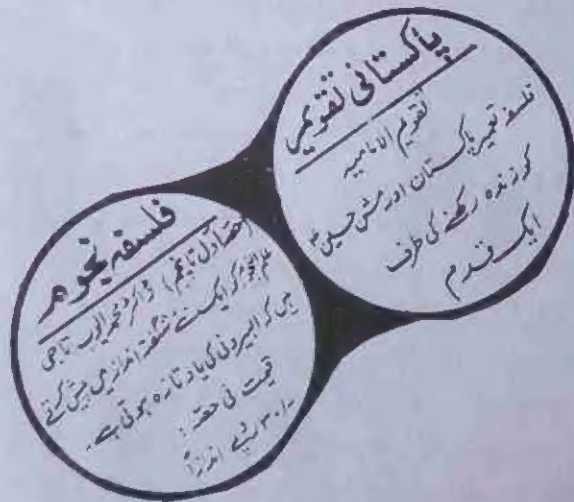 پاکستانی تقویم
تقویم الامامیہ
فلسفہ تعمیر پاکستان اور مشن حسینؑ
کو زندہ رکھنے کی طرف
ایک قدم
فلسفہ نجوم
(حصہ اول تا پنجم) ڈاکٹر محمد ایوب تاجی
علم نجوم کو ایک نئے شگفتہ انداز میں پیش کرتے
ہیں کہ البیرونی کی یاد تازہ ہوتی ہے۔
قیمت فی حصہ :
۳۰/- روپے اندازاً